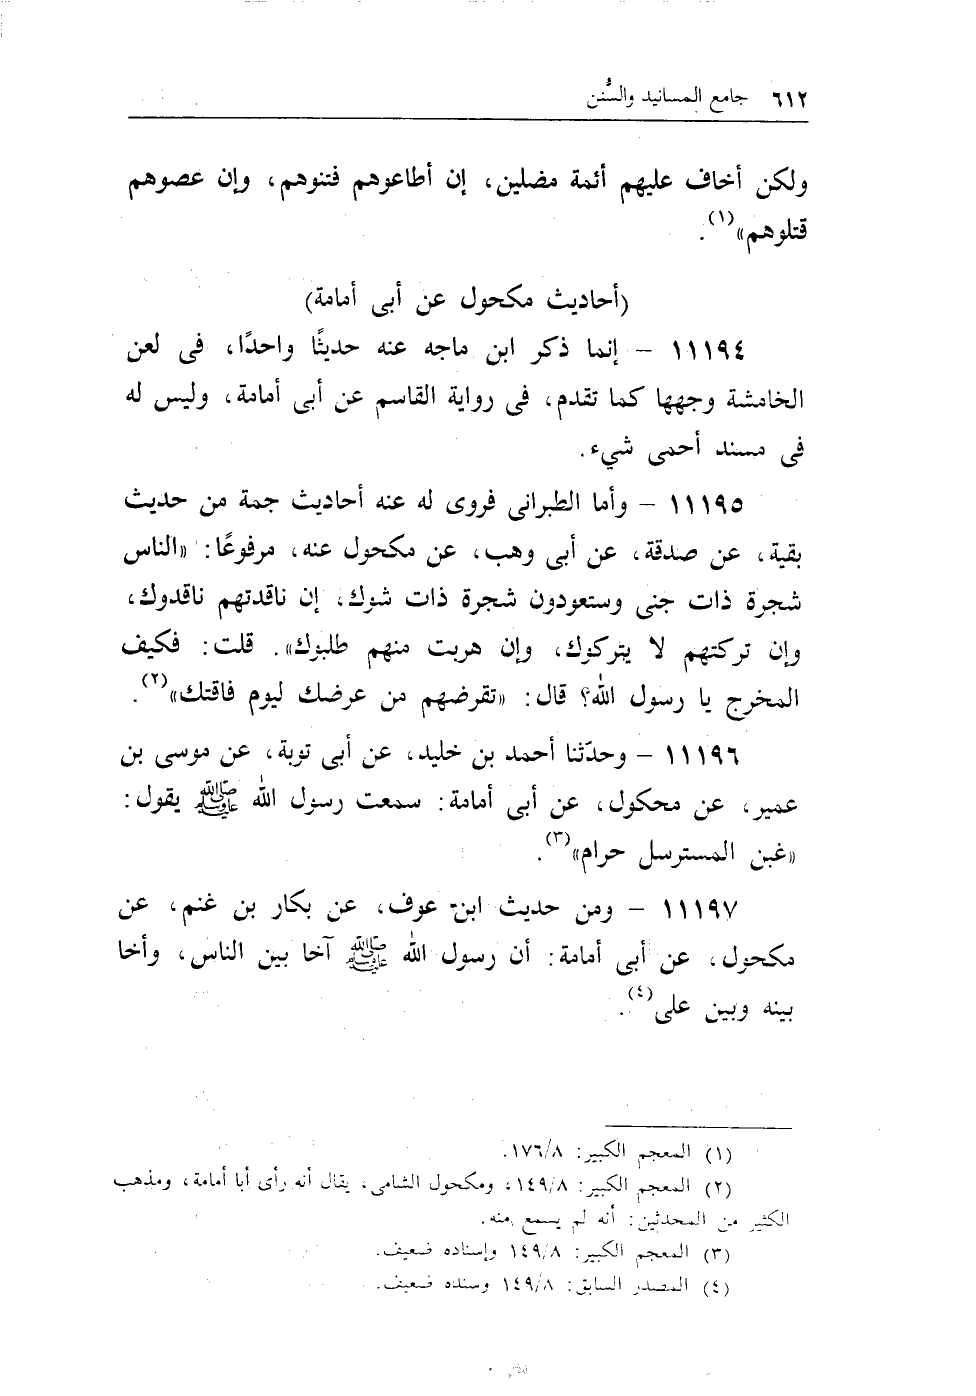 ٦١٢ جامع المسانيد والسُّنن
ولكن أخاف عليهم أئمة مضلين، إن أطاعوهم فتنوهم، وإن عصوهم
قتلوهم»(١).
(أحاديث مكحول عن أبى أمامة)
١١١٩٤ – إنما ذكر ابن ماجه عنه حديثًا واحدًا، فى لعن
الخامشة وجهها كما تقدم، فى رواية القاسم عن أبى أمامة، وليس له
فى مسند أحمى شيء.
١١١٩٥ – وأما الطبرانى فروى له عنه أحاديث جمة من حديث
بقية، عن صدقة، عن أبى وهب، عن مكحول عنه، مرفوعًا: «الناس
شجرة ذات جنى وستعودون شجرة ذات شوك، إن ناقدتهم ناقدوك،
وإن تركتهم لا يتركوك، وإن هربت منهم طلبوك». قلت: فكيف
المخرج يا رسول الله؟ قال: «تقرضهم من عرضك ليوم فاقتك»(٢).
١١١٩٦ – وحدّثنا أحمد بن خليد، عن أبى توبة، عن موسى بن
عمير، عن محكول، عن أبى أمامة: سمعت رسول الله ﷺ يقول:
«غبن المسترسل حرام»(٣).
١١١٩٧ – ومن حديث ابن عوف، عن بكار بن غنم، عن
مكحول، عن أبى أمامة: أن رسول الله ﷺ آخا بين الناس، وأخا
بينه وبين على(٤).
(١) المعجم الكبير: ١٧٦/٨.
(٢) المعجم الكبير: ١٤٩/٨، ومكحول الشامى، يقال أنه رأى أبا أمامة، ومذهب
الكثير من المحدثين: أنه لم يسمع منه.
(٣) المعجم الكبير: ١٤٩/٨ وإسناده ضعيف.
(٤) المصدر السابق: ١٤٩/٨ وسنده ضعيف.